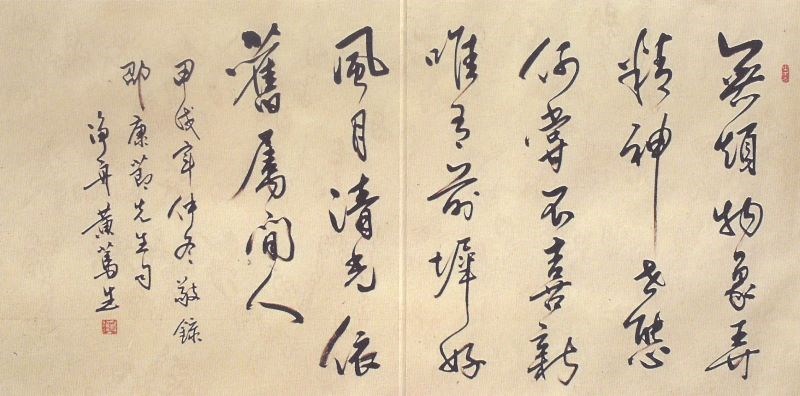 無煩物象弄
精神世態
何嘗不喜新
唯有前墀好
風月清光依
舊屬閒人
甲戌年仲冬敬錄
邵康節先生句
黃篤生